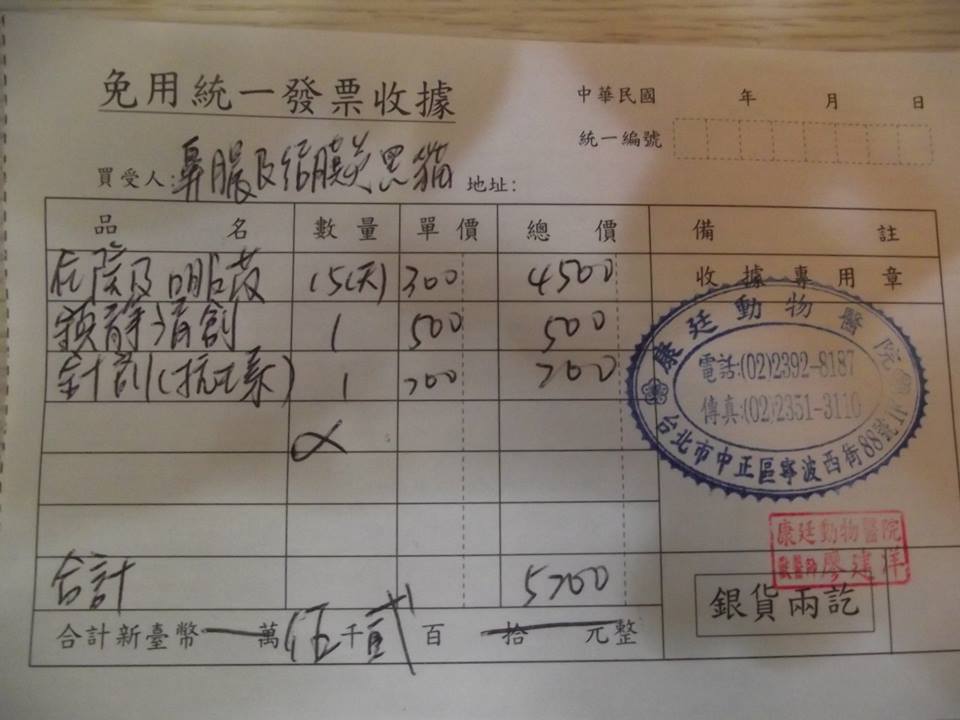 免用統一發票收據
中華民國 年 月 日
統一編號
買受人:鼻膿及結膜炎黑貓 地址:
品名 數量 單價 總價 備註
住院及 15(天) 300 4500 收據專用章
鎮靜清創 1 500 500
針劑(抗生素) 1 200 200
康廷動物醫院
電話:(02)2392-8187
傳真:(02)2351-3110
台北市中正區寧波西街88號1F
康廷動物醫院
獸醫師廖建
合計 5200
銀貨兩訖
合計新臺幣 萬伍千貳百 拾 元整